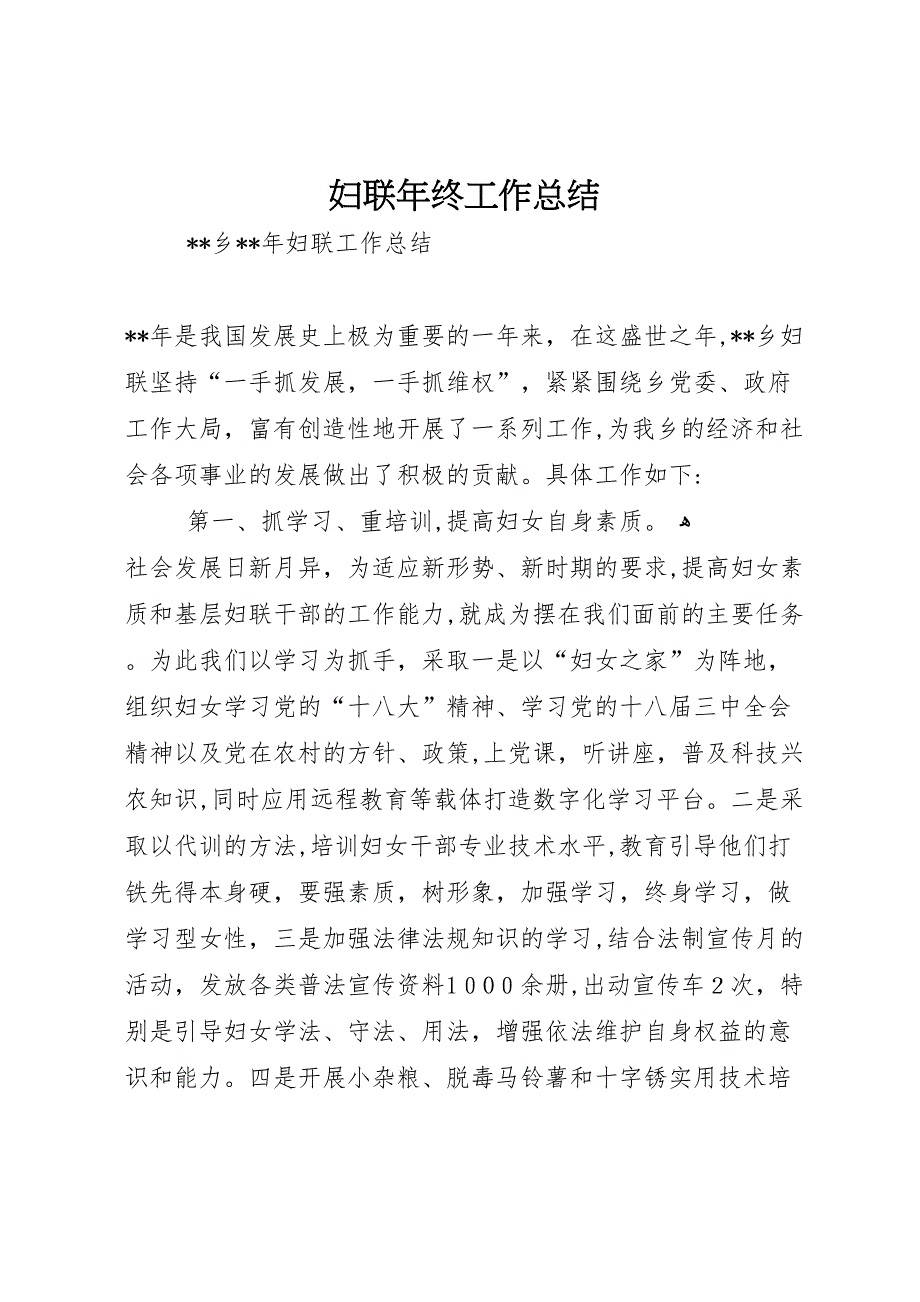 妇联年终工作总结
**乡**年妇联工作总结
**年是我国发展史上极为重要的一年来，在这盛世之年,**乡妇
联坚持“一手抓发展，一手抓维权”，紧紧围绕乡党委、政府
工作大局，富有创造性地开展了一系列工作,为我乡的经济和社
会各项事业的发展做出了积极的贡献。具体工作如下:
第一、抓学习、重培训,提高妇女自身素质。 ﻫ
社会发展日新月异，为适应新形势、新时期的要求,提高妇女素
质和基层妇联干部的工作能力,就成为摆在我们面前的主要任务
。为此我们以学习为抓手，采取一是以“妇女之家”为阵地，
组织妇女学习党的“十八大”精神、学习党的十八届三中全会
精神以及党在农村的方针、政策,上党课，听讲座，普及科技兴
农知识,同时应用远程教育等载体打造数字化学习平台。二是采
取以代训的方法,培训妇女干部专业技术水平,教育引导他们打
铁先得本身硬，要强素质，树形象，加强学习，终身学习，做
学习型女性，三是加强法律法规知识的学习,结合法制宣传月的
活动，发放各类普法宣传资料1000余册,出动宣传车2次，特
别是引导妇女学法、守法、用法，增强依法维护自身权益的意
识和能力。四是开展小杂粮、脱毒马铃薯和十字锈实用技术培